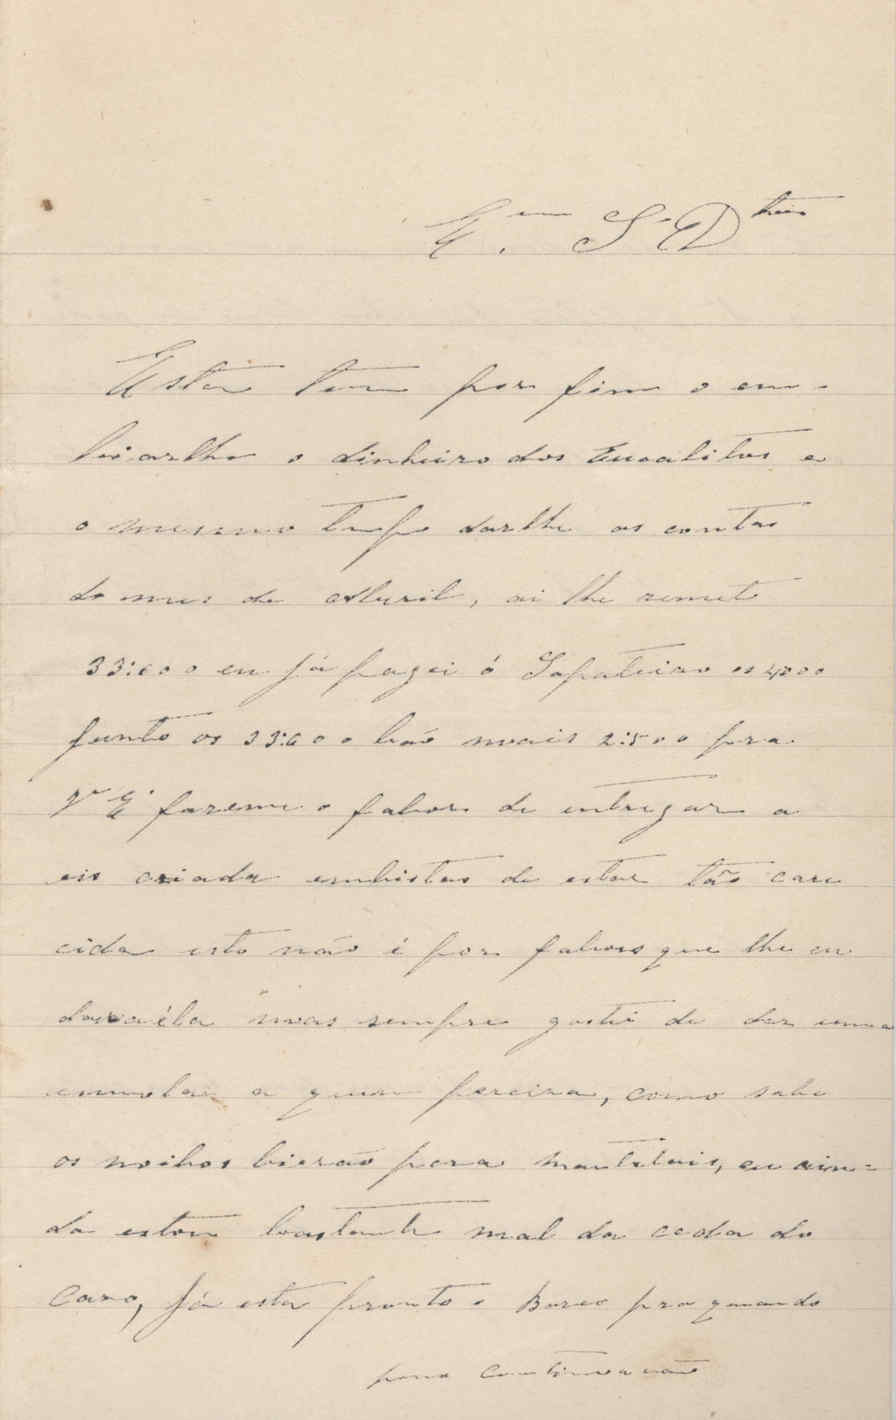 E.mo Sr Dtor
Esta tem por fim o em-
biarlhe o dinheiro dos Eucalitos e
o mesmo tempo darlhe as contas
do mes de Aburil, ai lhe remeto
33:600 eu já pagei ó Sapateiro os 4000
junto os 33:600 bão mais 2:500 pra
Vª Eª fazeme o fabor de entregar a
eis criada embistas de estar tão care
cida isto não é por fabors que lhe eu
déla mas sempre gostei de dar uma
esmola a quem perciza, como sabe
os noibos bierão pera Monteleais, eu ain=
da estou bastante mal da coeda do
Caro, Já esta pronto o Barco pra quando
para continuacão